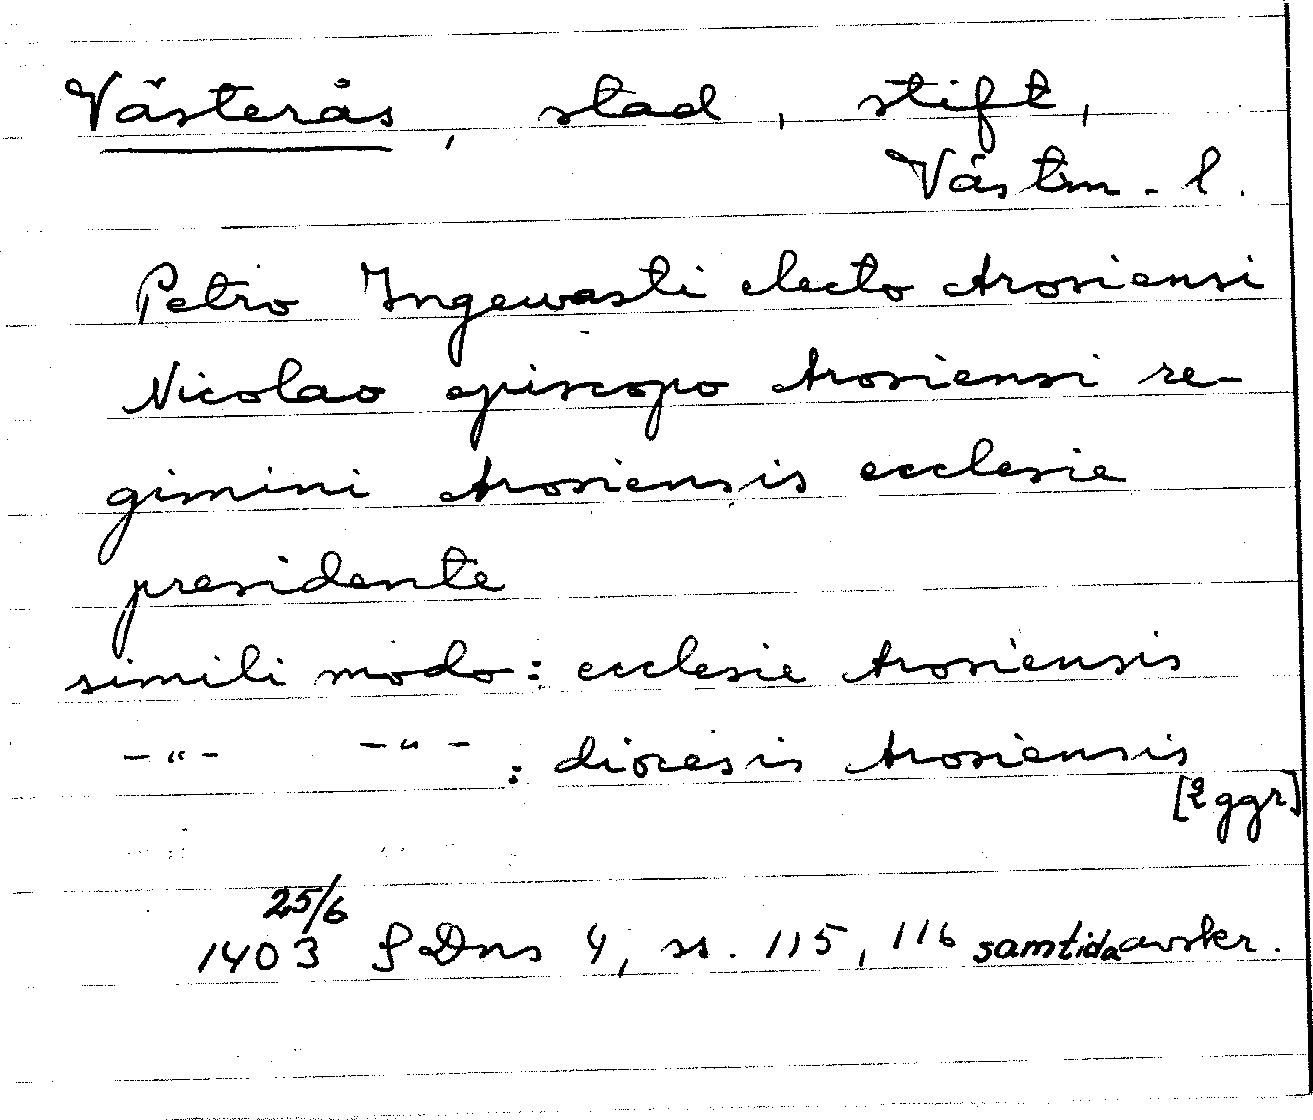 Västerås, stad, stift,
Västm. l.
Petro Ingewasti electo Arosiensi
Nicolao episcopo Arosiensi re-
gimini Arosiensis ecclesie
presidente
simili modo: ecclesie Arosiensis
-"- -"- : diocesis Arosiensis
[2 ggr]
25/6
1403 SDns 4, ss. 115, 116 samtida avskr.